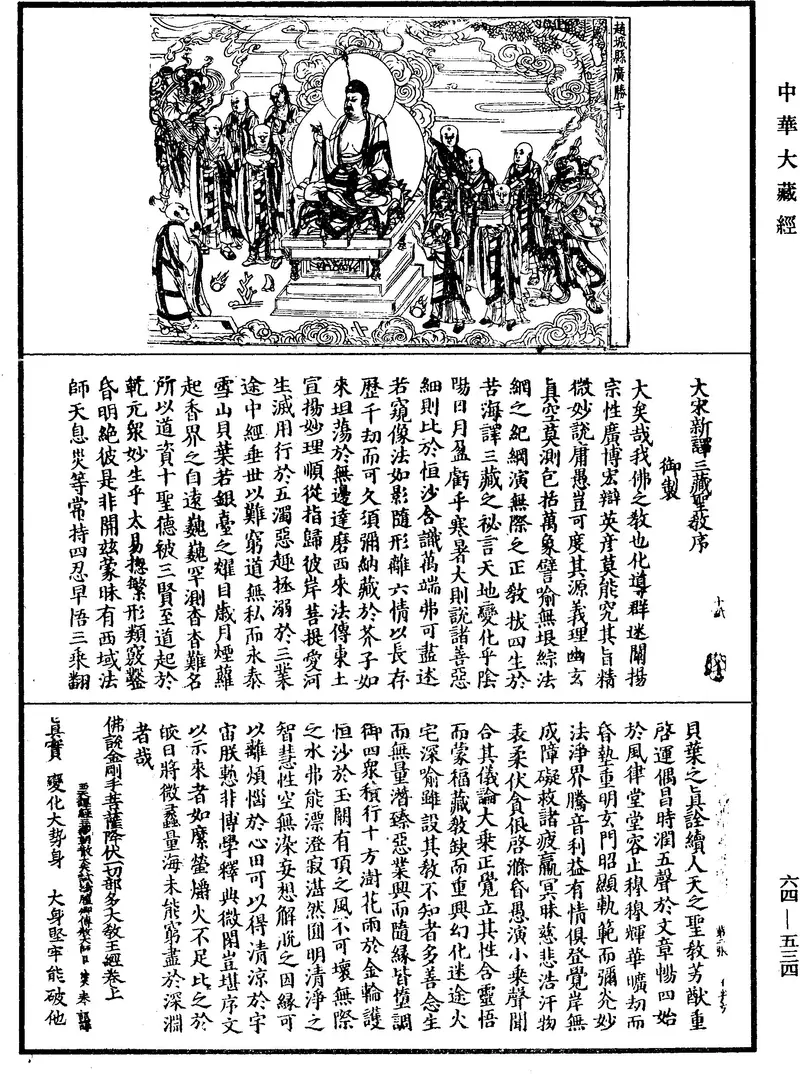 中華大藏經
趙城縣廣勝寺
大宋新譯三藏聖教序
御製
大矣哉我佛之教也化導群迷闡揚
宗性廣博宏辯英彥莫能究其旨精
微妙說庸愚豈可度其源義理幽玄
真空莫測包括萬象譬喻無垠綜法
網之紀綱演無際之正教拔四生於
苦海譯三藏之秘言天地變化乎陰
陽日月盈虧乎寒暑大則說諸善惡
細則比於恒沙含識萬端弗可盡述
若窺像法如影隨形離六情以長存
歷千劫而可久須彌納藏於芥子如
來坦蕩於無邊達磨西來法傳東土
宣揚妙理順從指歸彼岸菩提愛河
生滅用行於五濁惡趣拯溺於三業
途中經垂世以難窮道無私而永泰
雪山貝葉若銀臺之耀目歲月煙蘿
起香界之自遠巍巍罕測杳杳難名
所以道資十聖德被三賢至道起於
乾元眾妙生乎太易揔繁形類竅鑿
昏明絕彼是非開茲蒙昧有西域法
師天息災等常持四忍早悟三乘翻
貝葉之真詮續人天之聖教芳猷重
啓運偶昌時潤五聲於文章暢四始
於風律堂堂容止穆穆輝華曠劫而
昏墊重明玄門昭顯軌範而彌光妙
法淨界騰音利益有情俱登覺岸無
成障礙救諸疲羸冥昧慈悲浩汗物
表柔伏貪很啓滌昏愚演小乘聲聞
合其儀論大乘正覺立其性含靈悟
而蒙福藏教缺而重興幻化迷途火
宅深喻雖設其教不知者多善念生
而無量潛臻惡業興而隨緣皆墮調
御四眾積行十方澍花雨於金輪護
恒沙於玉闕有頂之風不可壞無際
之水弗能漂澄寂湛然圓明清淨之
智慧性空無染妄想解脫之因緣可
以離煩惱於心田可以得清涼於宇
宙朕慙非博學釋典微閑豈堪序文
以示來者如縻螢爝火不足比之於
皎日將微蠡量海未能窮盡於深淵
者哉
佛說金剛手菩薩降伏一切部多大教王經卷上
真實 變化大勢身 大身堅牢能破他
六四—五三四